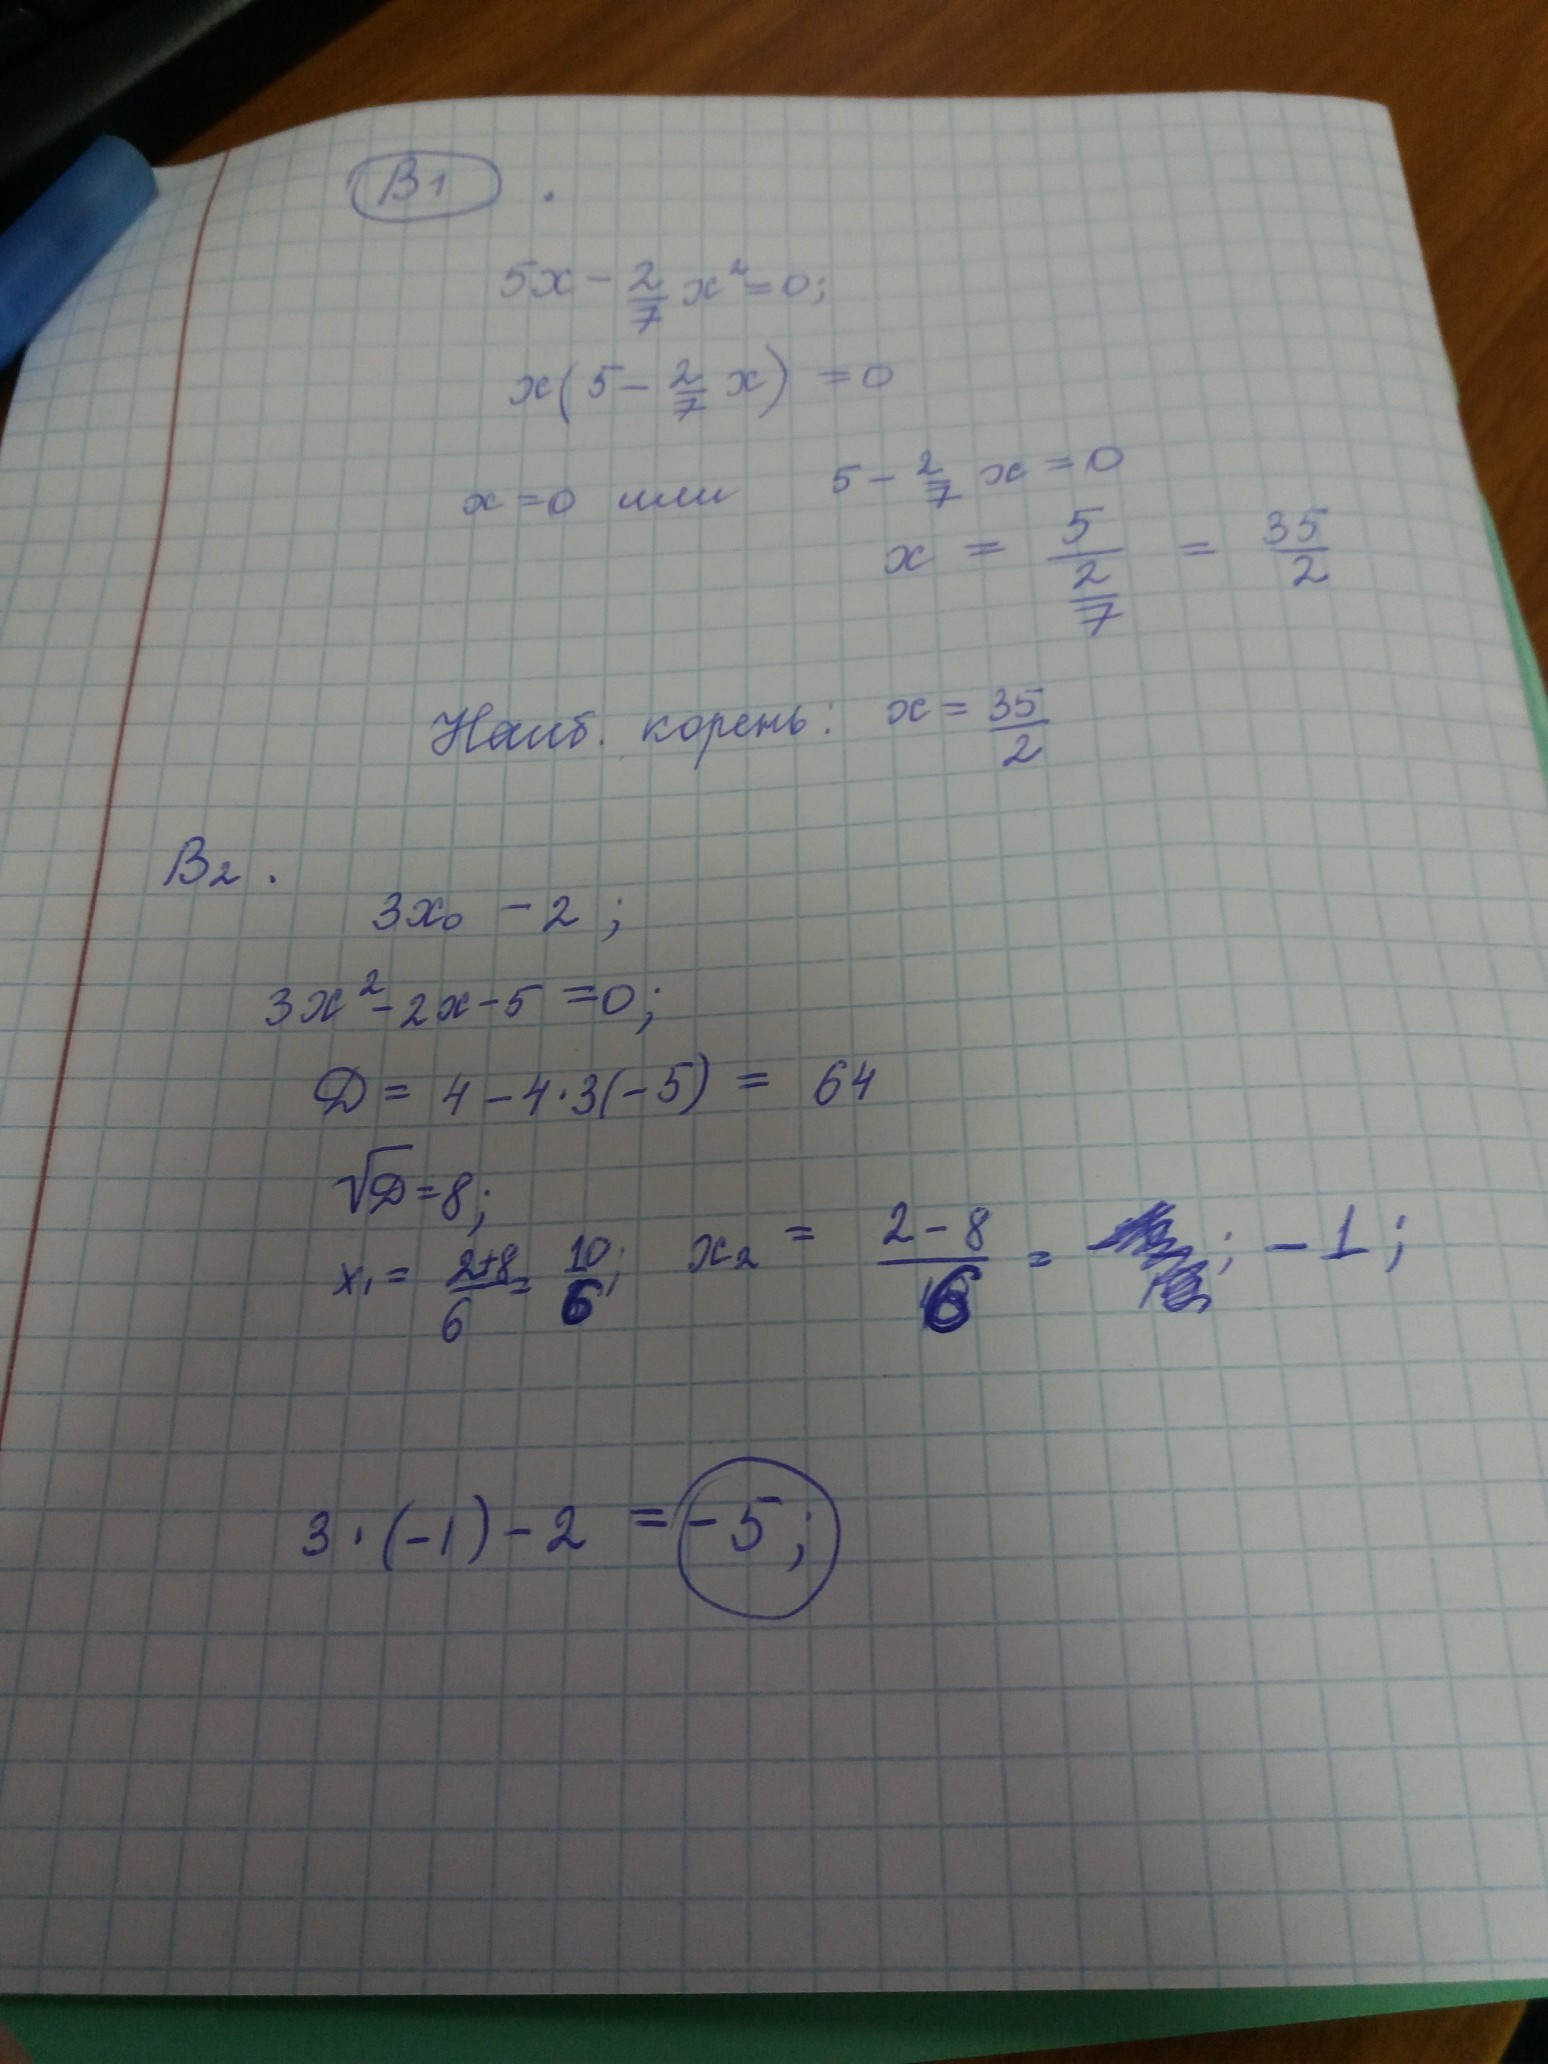 В1.
5x - 2/7 x² = 0;
x(5 - 2/7 x) = 0
x = 0 или 5 - 2/7 x = 0
x = 5/(2/7) = 35/2
Наиб. корень: x = 35/2
В2.
3x₀ - 2;
3x² - 2x - 5 = 0;
D = 4 - 4·3(-5) = 64
√D = 8;
x₁ = (2+8)/6 = 10/6; x₂ = (2-8)/6 = ; -1;
3·(-1) - 2 = -5;